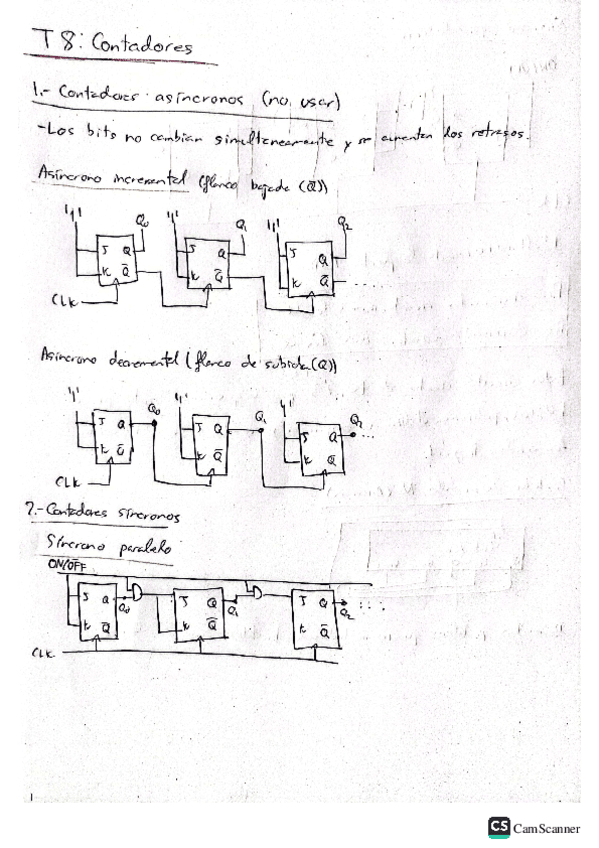 T 8: Contadores
1.- Contadores asíncronos (no usar)
-Los bits no cambian simultáneamente y se aumentan los retrasos.
Asíncrono incremental (flanco bajada (Q̅))
'1' Q0 '1' Q1 '1' Q2
J Q J Q J Q
K Q̅ K Q̅ K Q̅ ...
CLK
Asíncrono decremental (flanco de subida (Q))
'1' Q0 '1' Q1 '1' Q2
J Q J Q J Q ...
K Q̅ K Q̅ K Q̅
CLK
2.- Contadores síncronos
Síncrono paralelo
ON/OFF
J Q Q0 J Q Q1 J Q Q2 ...
K Q̅ K Q̅ K Q̅
CLK
CS CamScanner